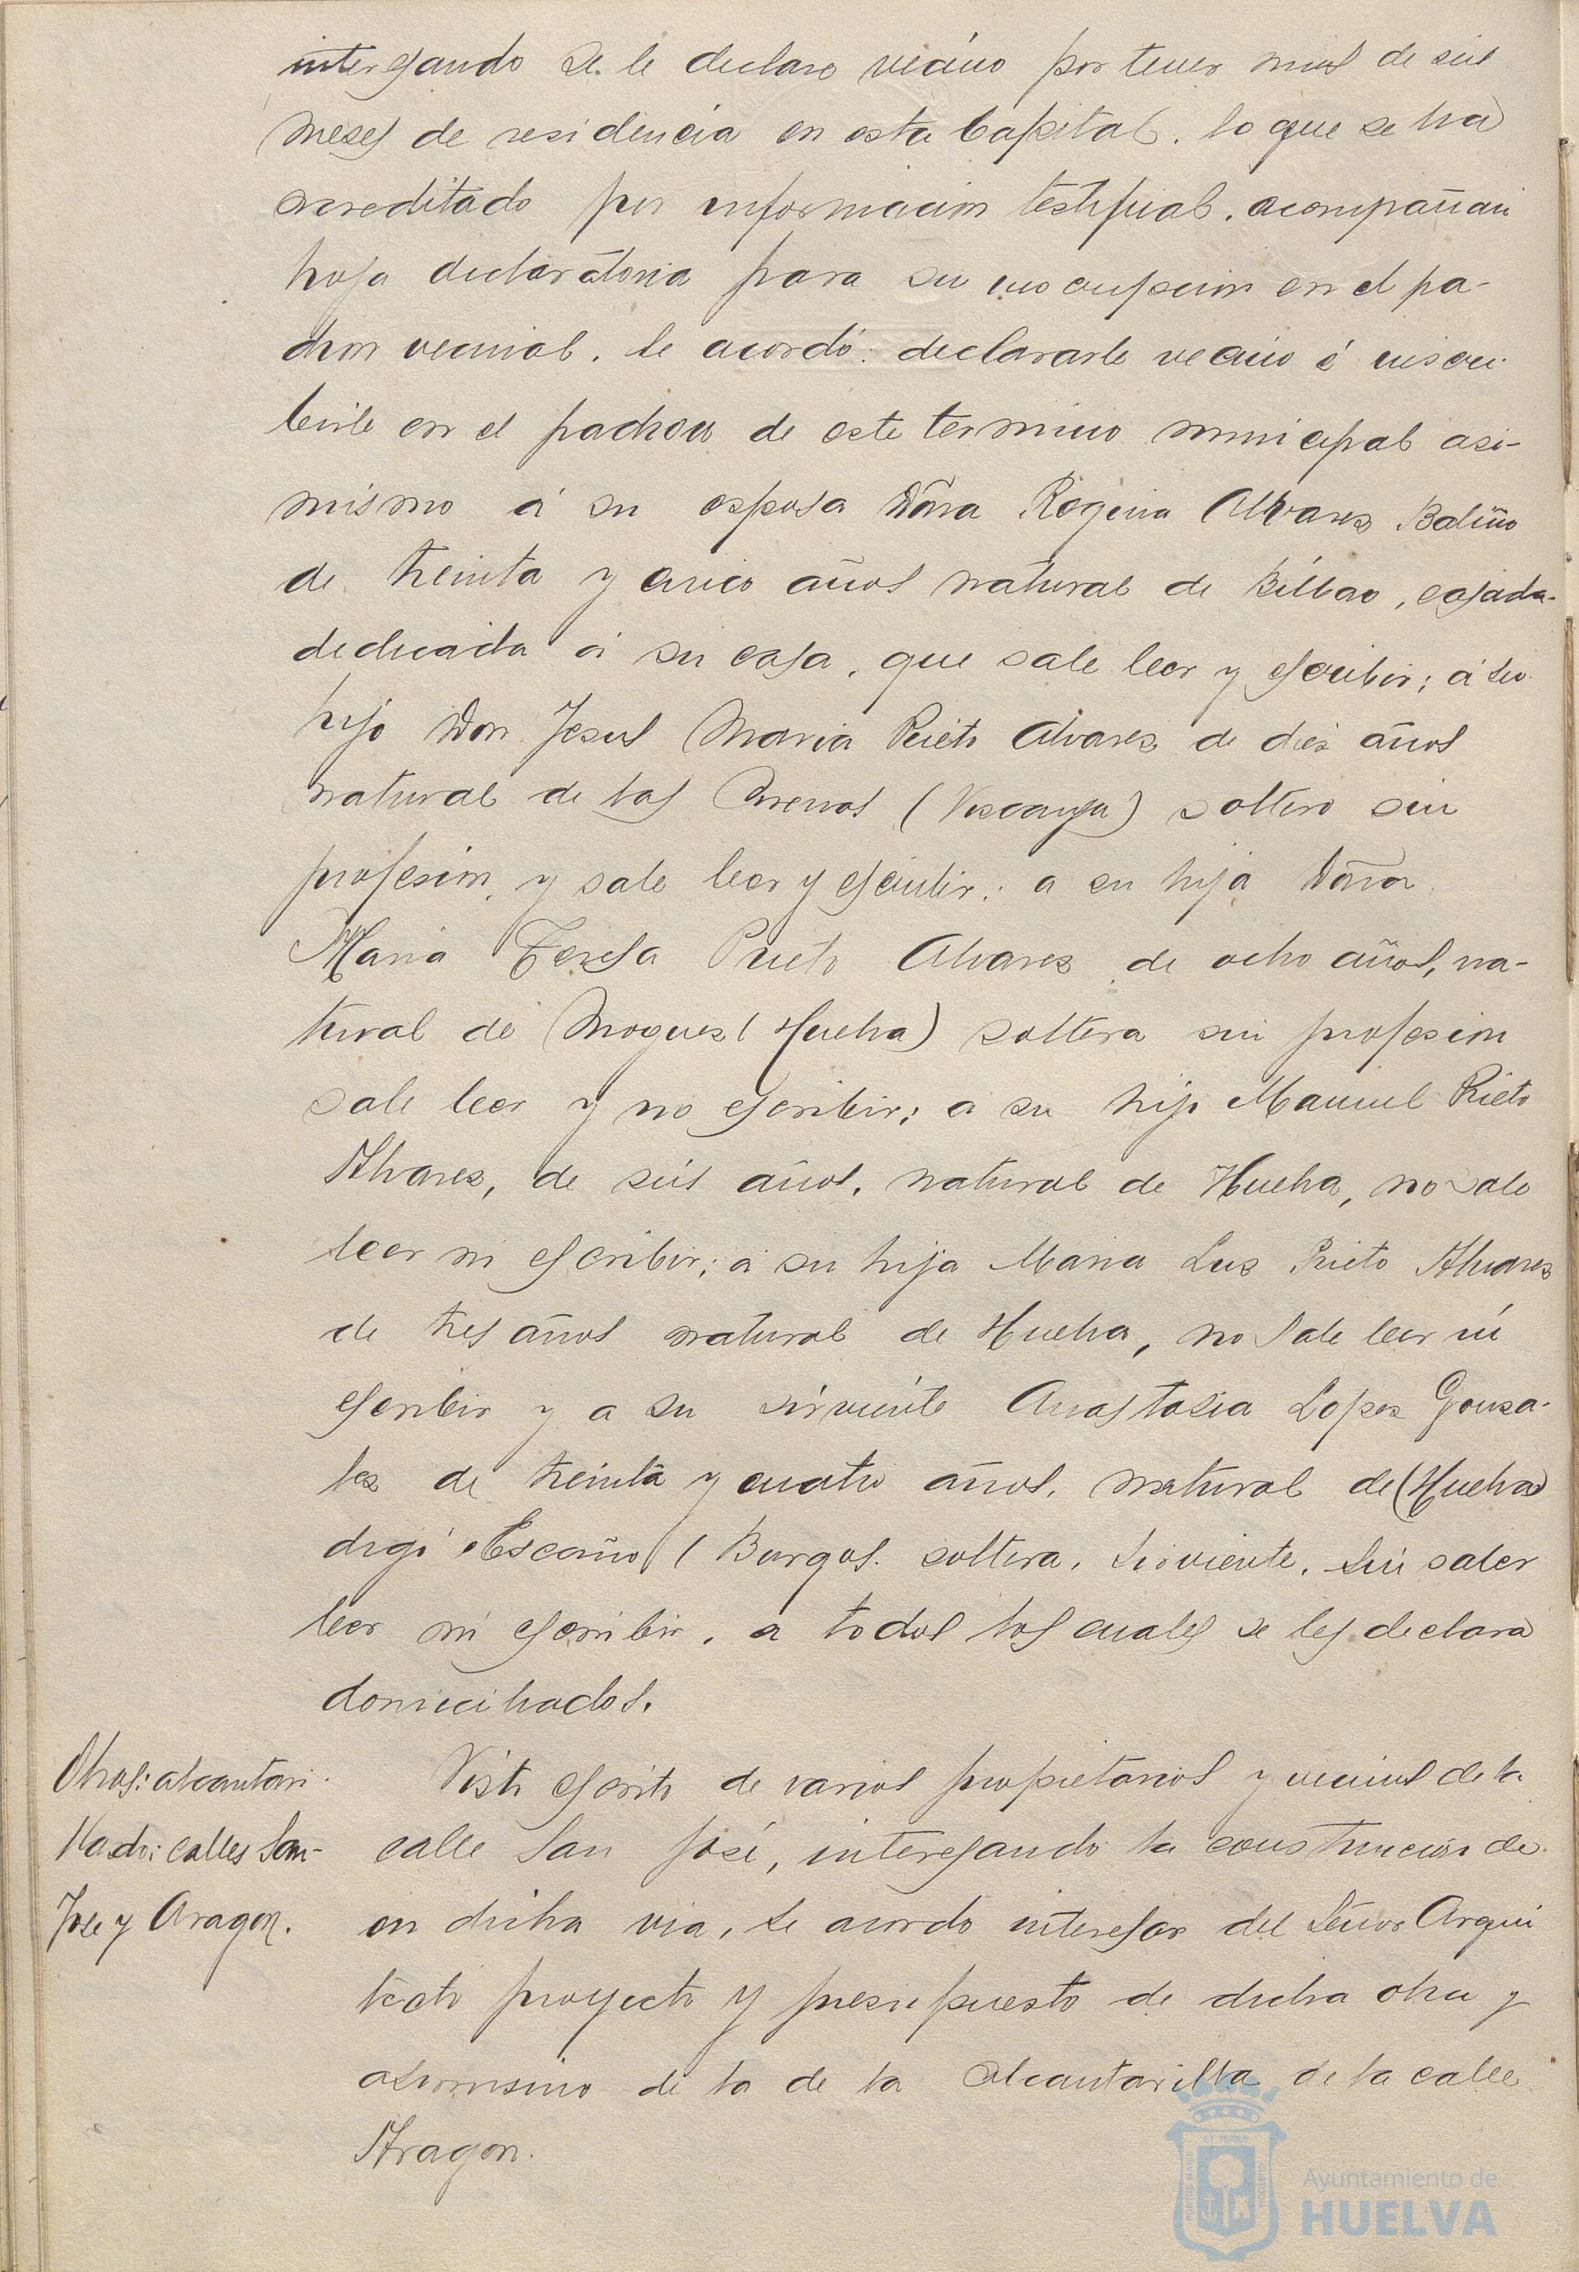 interesando se le declare vecino por tener mas de seis
meses de residencia en esta Capital. lo que se ha
acreditado por informacion testifical. acompañan
hoja declaratoria para su inscripcion en el pa-
dron vecinal. Se acordó: declararle vecino é inscri-
birle en el padron de este termino municipal asi-
mismo á su esposa Dña Regina Alvares Baliño
de treinta y cinco años natural de Bilbao, casada.
dedicada á su casa, que sabe leer y escribir; á su
hijo Don Jesus Maria Prieto Alvarez de diez años
natural de las Arenas (Viscaya) soltero sin
profesion, y sabe leer y escribir: a su hija Dña
Maria Teresa Prieto Alvarez de ocho años, na-
tural de Moguer (Huelva) soltera sin profesion
sabe leer y no escribir; a su hijo Manuel Prieto
Alvarez, de seis años, natural de Huelva, no sabe
leer ni escribir; a su hija Maria Luz Prieto Alvarez
de tres años natural de Huelva, no sabe leer ni
escribir y a su sirviente Anastasia Lopez Gonza-
lez de treinta y cuatro años, natural de (Huelva
digo Escaño ( Burgos. soltera, sirviente, sin saber
leer ni escribir, a todos los cuales se les declara
domiciliados.
Obras: alcantari-
llado: calles San-
Jose y Aragon.
Visto escrito de varios propietarios y vecinos de la
calle San José, interesando la construccion de
en dicha via, se acordo interesar del Señor Arqui
tecto proyecto y presupuesto de dicha obra y
asimismo de la de la alcantarilla de la calle
Aragon.
Ayuntamiento de
HUELVA